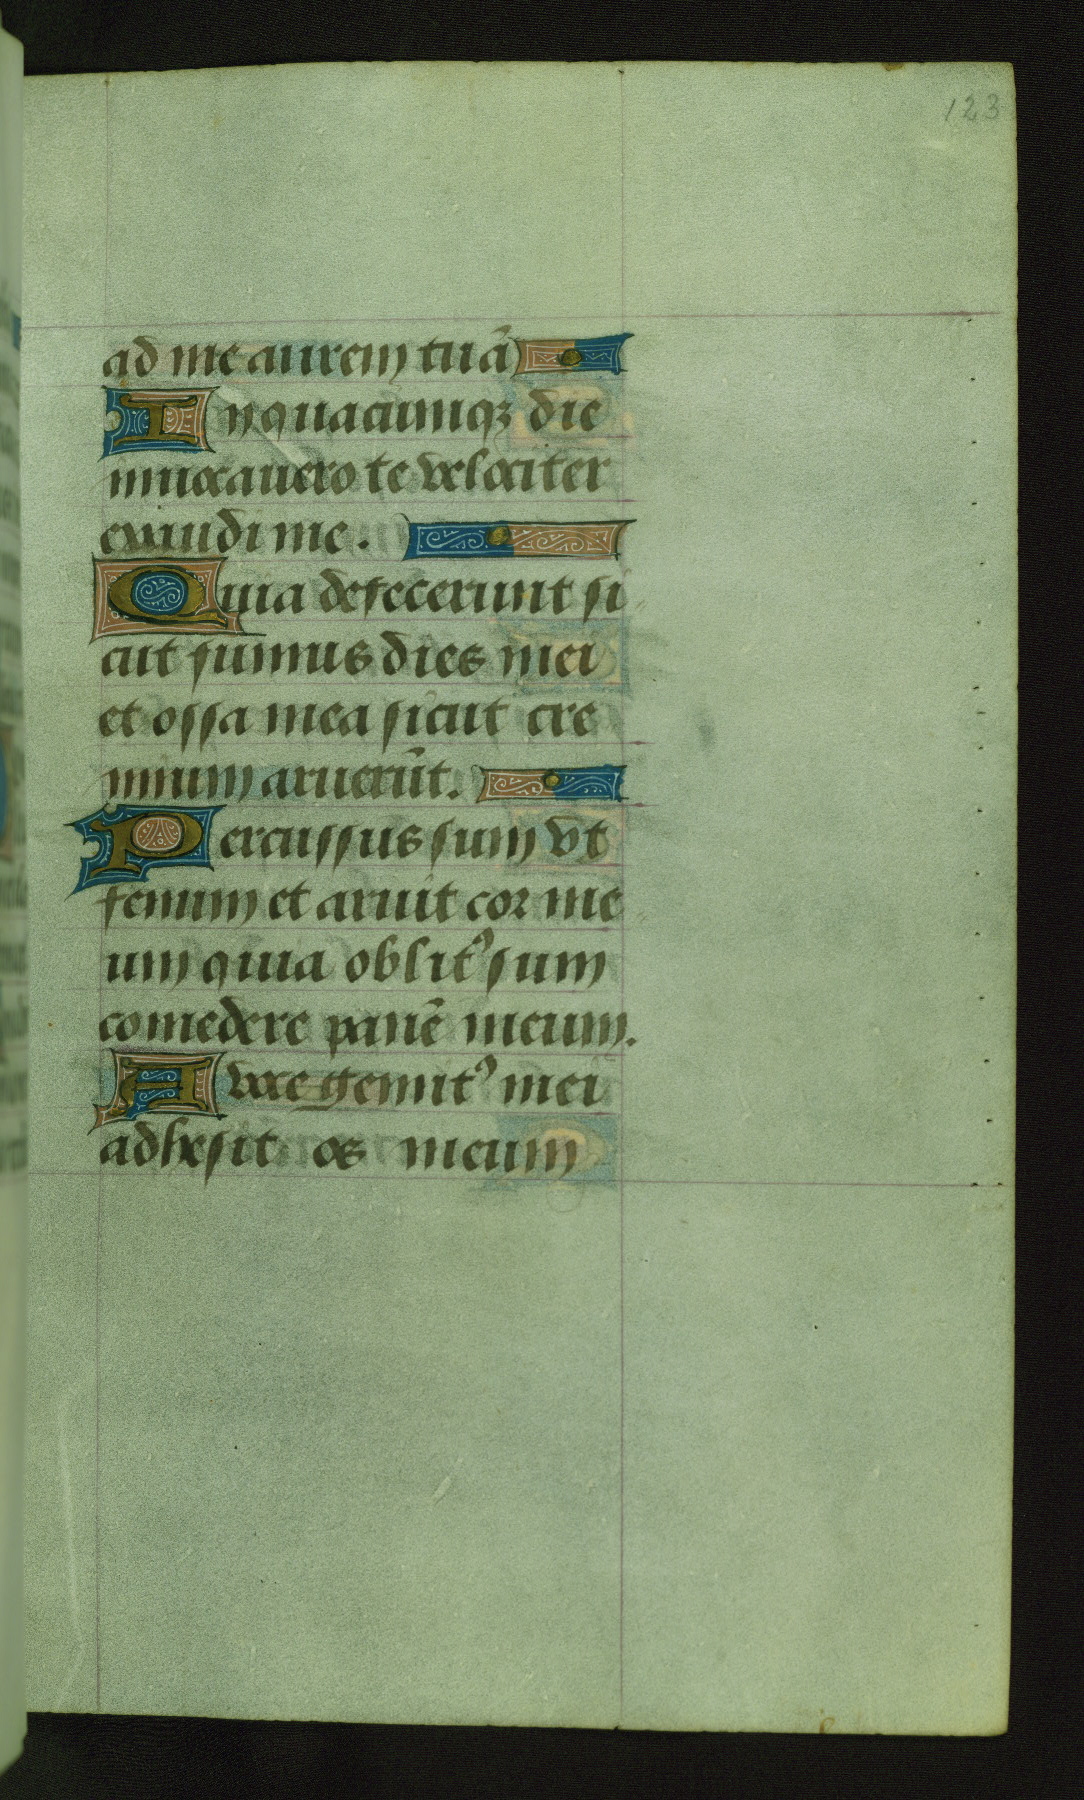 123
ad me aurem tuā
In quacumqꝫ die
inuocauero te velociter
exaudi me.
Quia defecerunt si
cut fumus dies mei
et ossa mea sicut cre
mium aruerūt.
Percussus sum vt
fenum et aruit cor me
um quia oblitꝰ sum
comedere panē meum.
A voce gemitꝰ mei
adhesit os meum